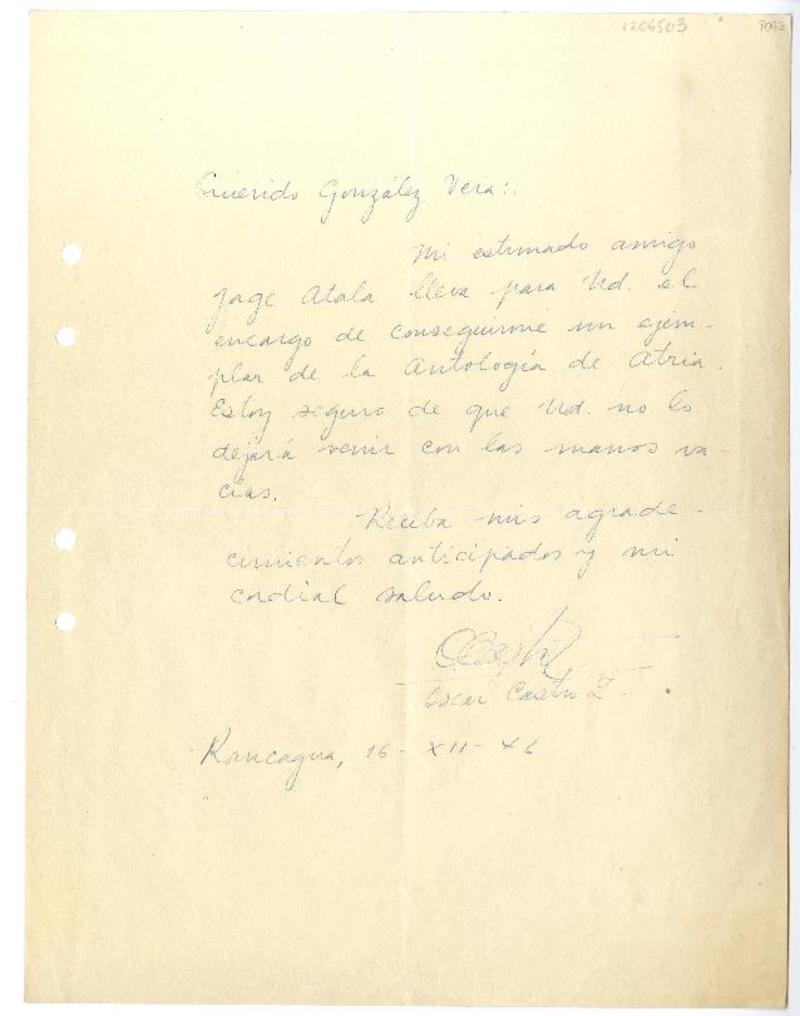 1206503
Querido González Vera:.
Mi estimado amigo
Jorge Atala lleva para Ud. el
encargo de conseguirme un ejem-
plar de la Antología de Atria.
Estoy seguro de que Ud. no lo
dejará venir con las manos va-
cías.
Reciba mis agrade-
cimientos anticipados y mi
cordial saludo.
Oscar Castro Z.
Rancagua, 16 - XII - 46